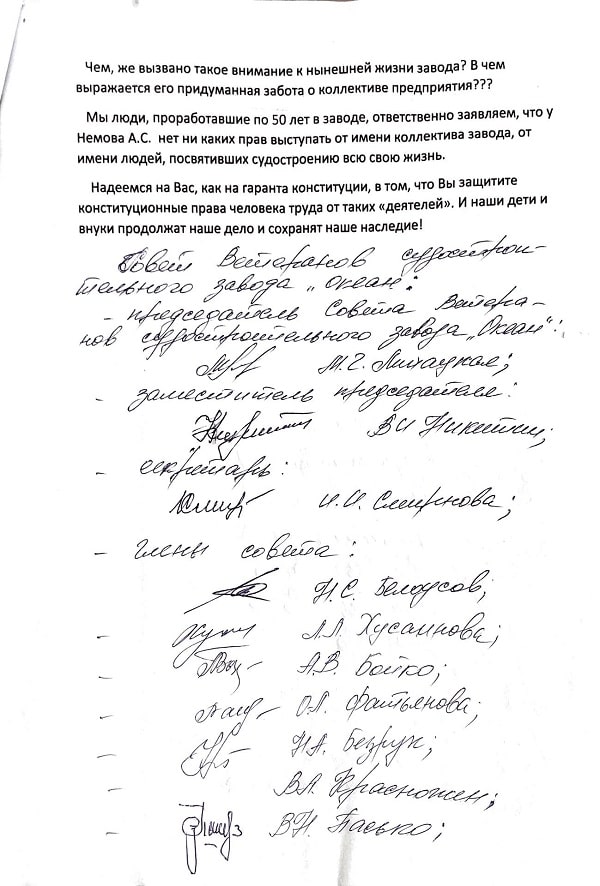 Чем, же вызвано такое внимание к нынешней жизни завода? В чем
выражается его придуманная забота о коллективе предприятия???
Мы люди, проработавшие по 50 лет в заводе, ответственно заявляем, что у
Немова А.С. нет ни каких прав выступать от имени коллектива завода, от
имени людей, посвятивших судостроению всю свою жизнь.
Надеемся на Вас, как на гаранта конституции, в том, что Вы защитите
конституционные права человека труда от таких «деятелей». И наши дети и
внуки продолжат наше дело и сохранят наше наследие!
Совет Ветеранов судострои-
тельного завода „Океан":
- председатель Совета Ветера-
нов судостроительного завода „Океан":
М.Г.
- заместитель председателя:
В И Никитин;
- секретарь:
И.И. Смирнова;
- члены совета:
Н.С. Белоусов;
- Л.Л. Хусаинова;
- А.В. Бойко;
- О.Л. Фатьянова;
- Н.А. Безрук;
- В.А. Красножен;
- В.Н. Пасько;